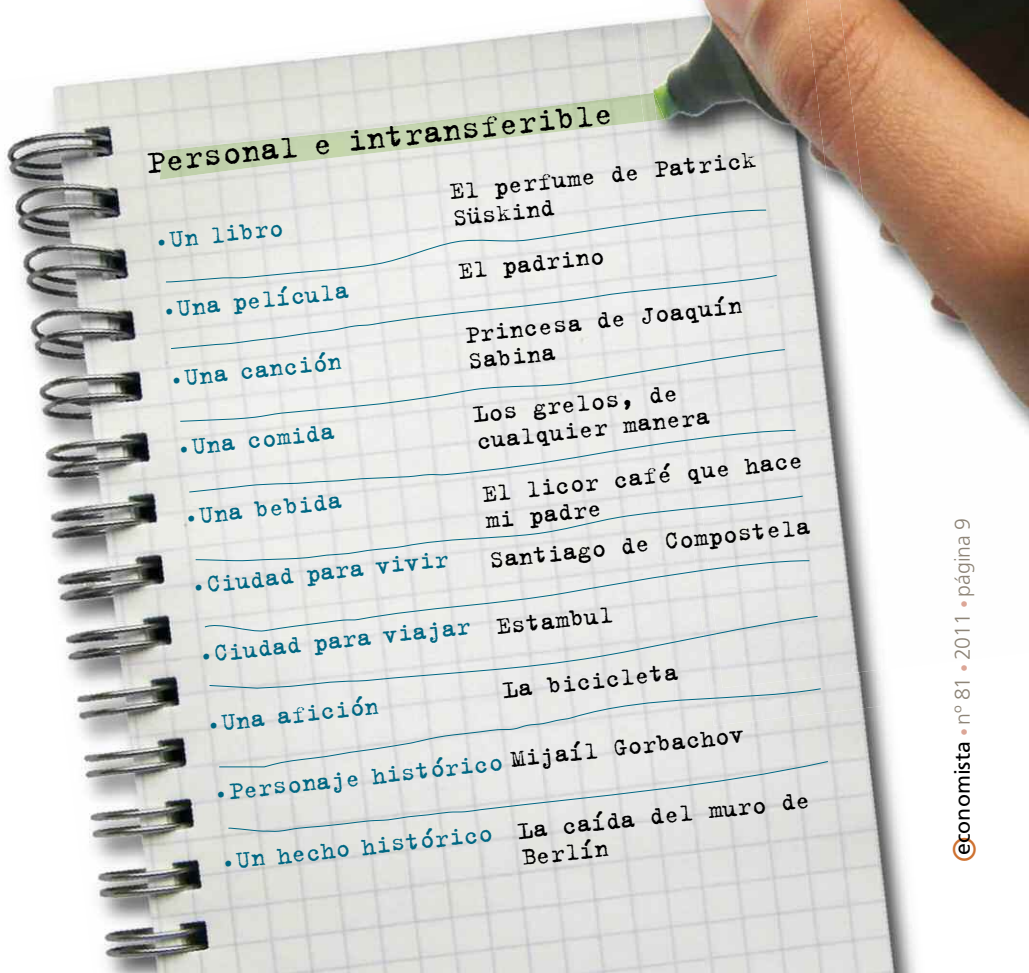 Personal e intransferible
•Un libro
El perfume de Patrick
Süskind
•Una película
El padrino
•Una canción
Princesa de Joaquín
Sabina
•Una comida
Los grelos, de
cualquier manera
•Una bebida
El licor café que hace
mi padre
•Ciudad para vivir
Santiago de Compostela
•Ciudad para viajar
Estambul
•Una afición
La bicicleta
•Personaje histórico
Mijaíl Gorbachov
•Un hecho histórico
La caída del muro de
Berlín
economista • nº 81 • 2011 • página 9